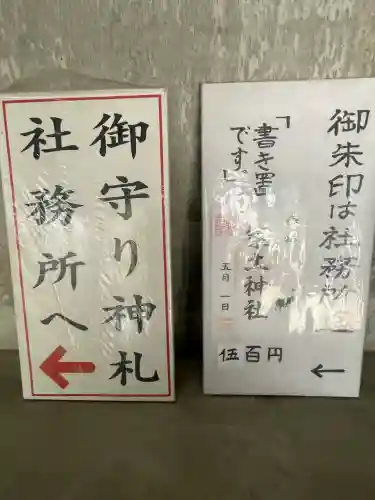 御守り神札
社務所へ
御朱印は社務所
「書き置
です」
五月一日
伍百円